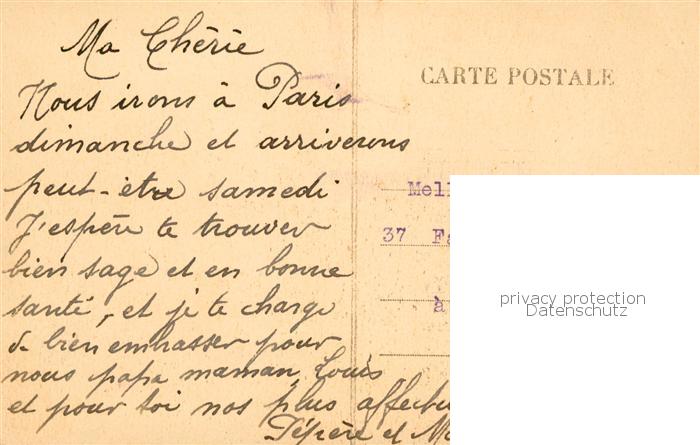 Ma Chérie
Nous irons à Paris
dimanche et arriverons
peut-être samedi
J'espère te trouver
bien sage et en bonne
santé, et je te charge
de bien embrasser pour
nous papa maman Louis
et pour toi nos plus affectu
Pépère et M
CARTE POSTALE
Mell
37 Fa
à
privacy protection
Datenschutz